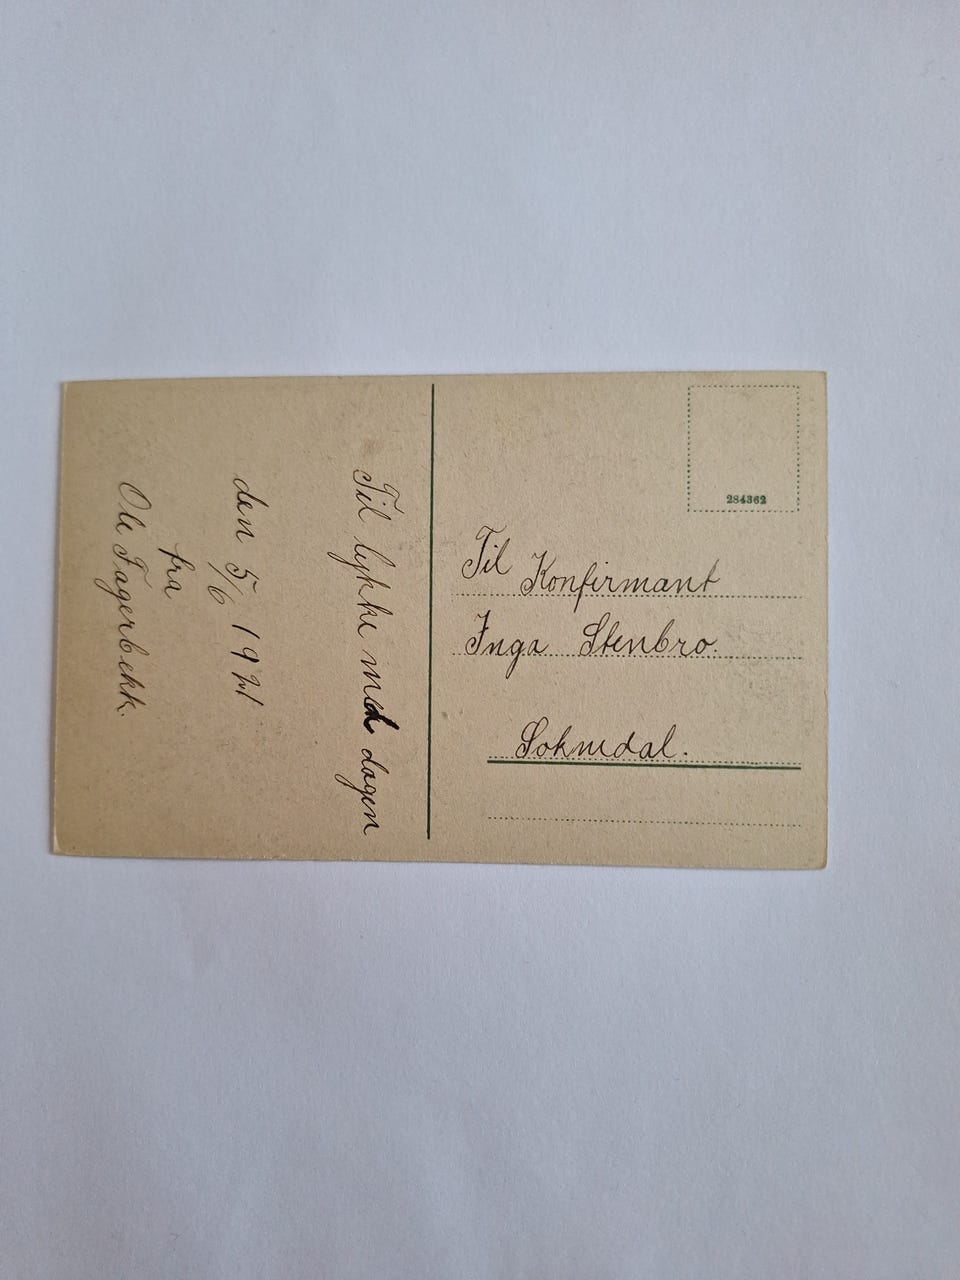 Til lykke med dagen
den 5/6 1921
fra
Ole Fagerbekk.
284362
Til Konfirmant
Inga Stenbro.
Soknedal.